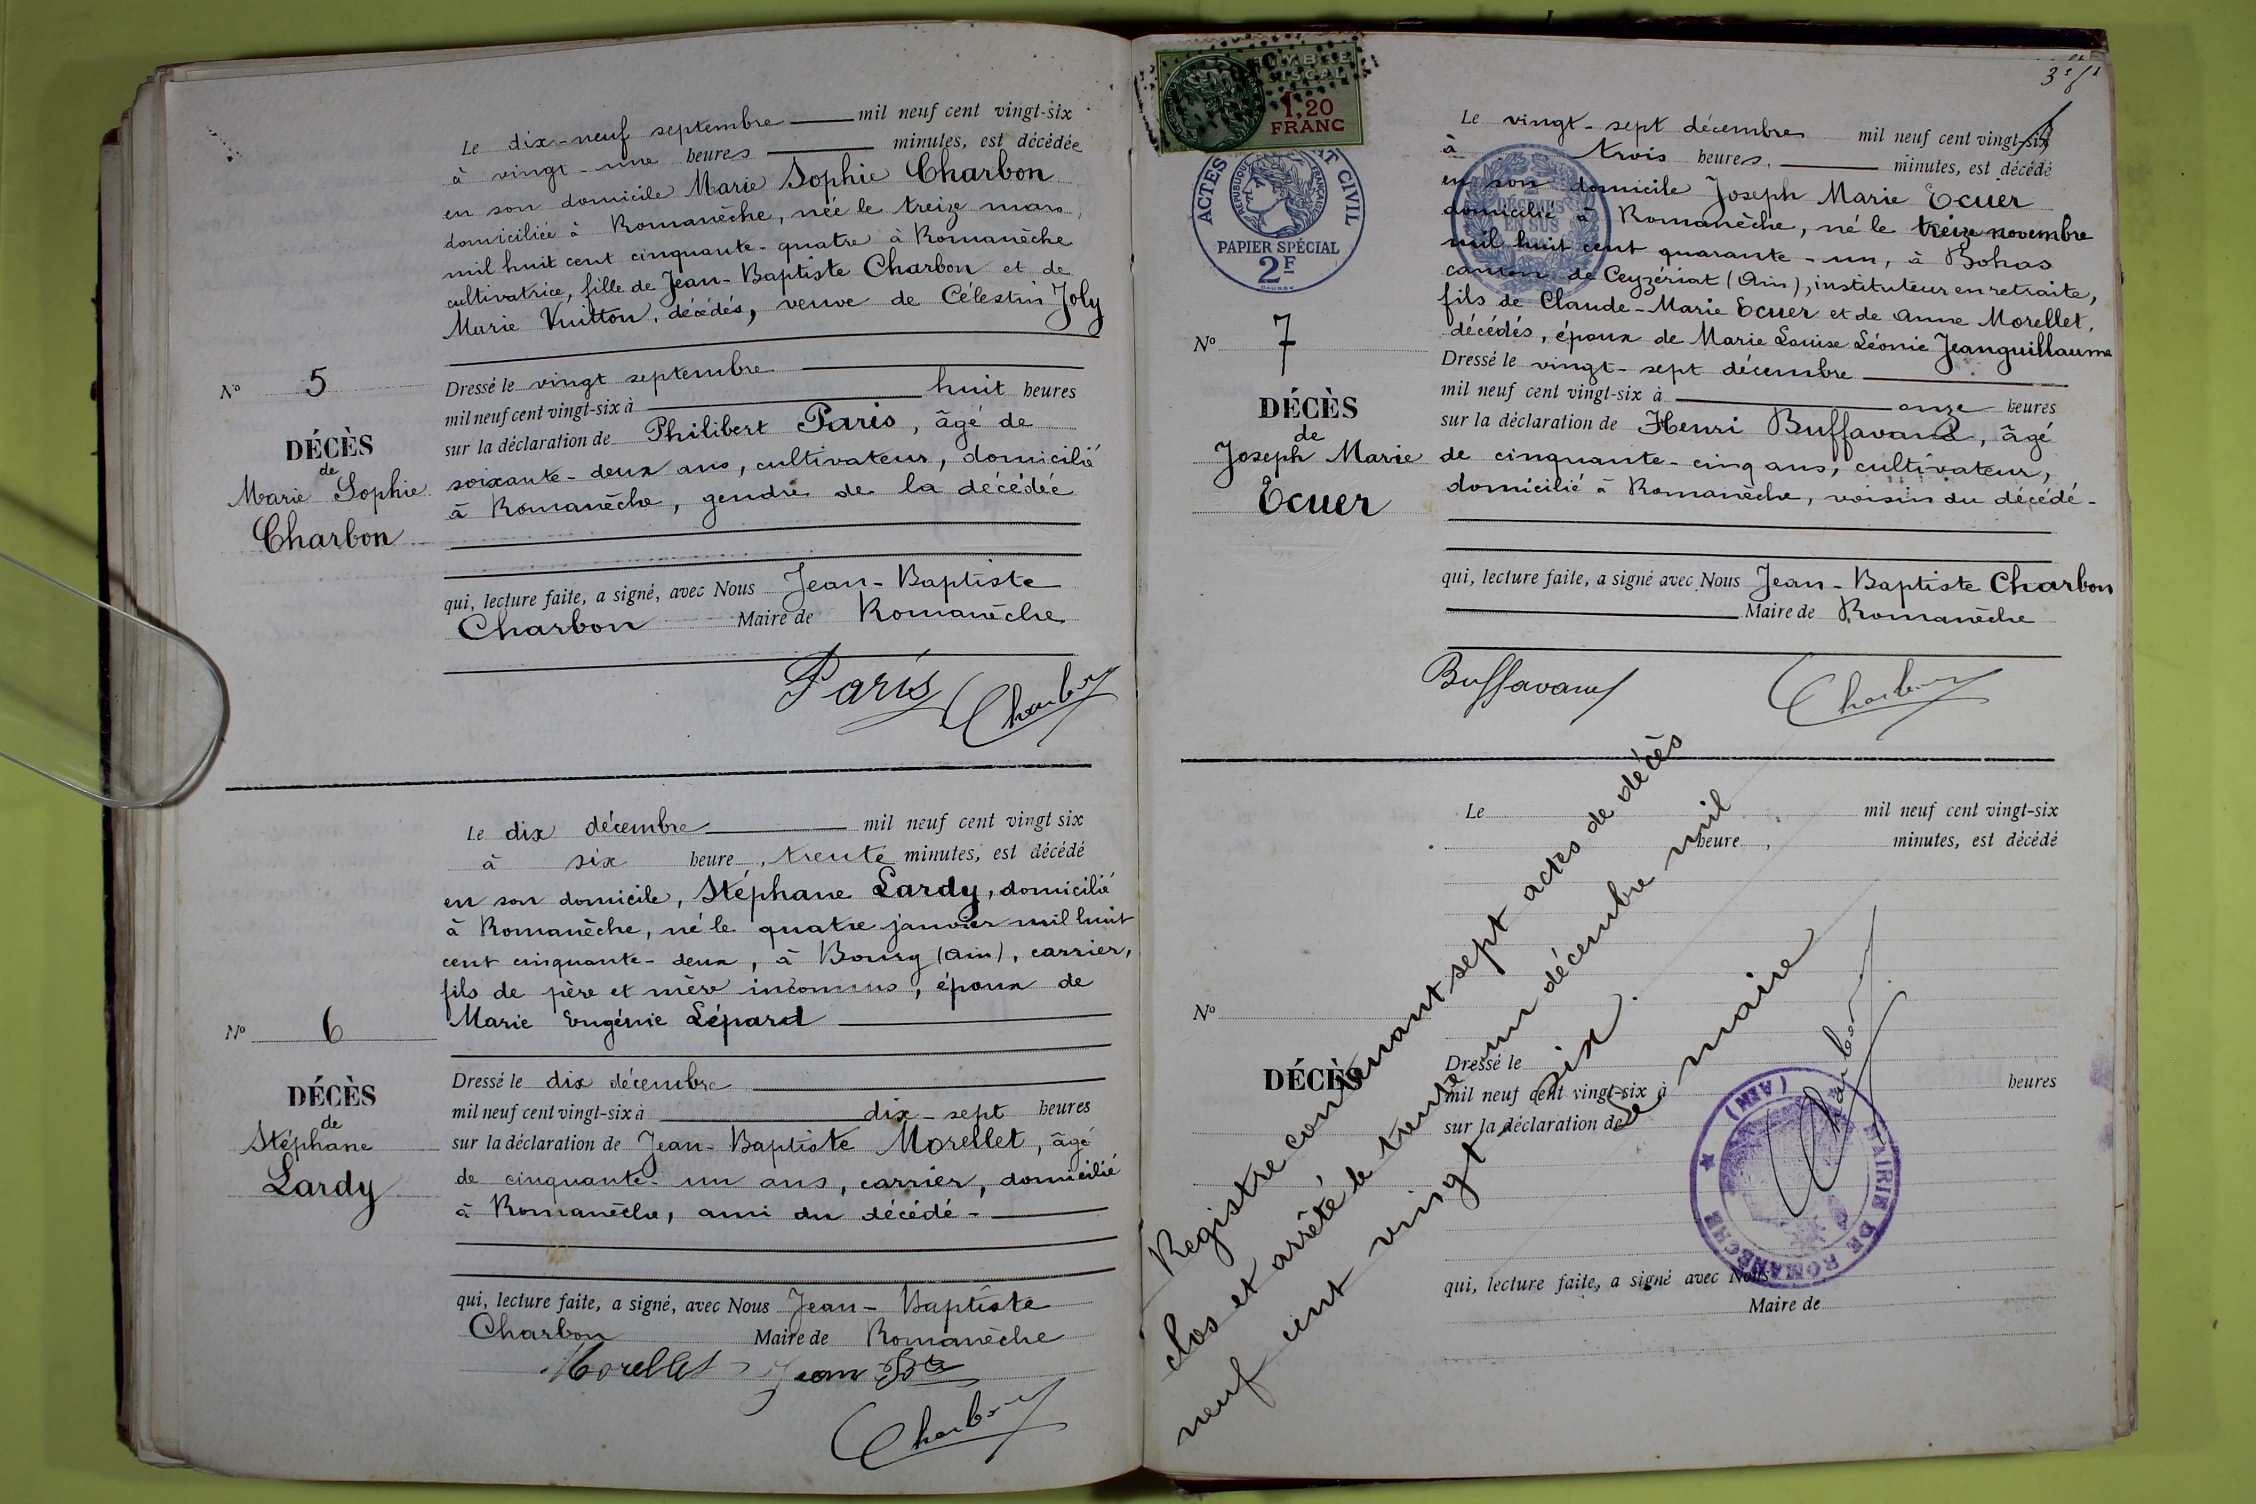 Le dix-neuf septembre mil neuf cent vingt-six
à vingt-une heures minutes, est décédée
en son domicile Marie Sophie Charbon
domiciliée à Romanèche, née le treize mars
mil huit cent cinquante-quatre à Romanèche
cultivatrice, fille de Jean-Baptiste Charbon et de
Marie Vuitton, décédés, veuve de Célestin Joly
Nº 5
DÉCÈS
de
Marie Sophie
Charbon
Dressé le vingt septembre
mil neuf cent vingt-six à huit heures
sur la déclaration de Philibert Paris, âgé de
soixante-deux ans, cultivateur, domicilié
à Romanèche, gendre de la décédée
qui, lecture faite, a signé, avec Nous Jean-Baptiste
Charbon Maire de Romanèche
Paris Charbon
Le dix décembre mil neuf cent vingt six
à six heure, trente minutes, est décédé
en son domicile, Stéphane Lardy, domicilié
à Romanèche, né le quatre janvier mil huit
cent cinquante-deux, à Bourg (Ain), carrier,
fils de père et mère inconnus, époux de
Marie Eugénie Lépard
Nº 6
DÉCÈS
de
Stéphane
Lardy
Dressé le dix décembre
mil neuf cent vingt-six à dix-sept heures
sur la déclaration de Jean-Baptiste Morellet, âgé
de cinquante-un ans, carrier, domicilié
à Romanèche, ami du décédé-
qui, lecture faite, a signé, avec Nous Jean-Baptiste
Charbon Maire de Romanèche
Morellet Jean Bte
Charbon
TIMBRE
FISCAL
1,20
FRANC
ACTES ÉTAT CIVIL
RÉPUBLIQUE FRANÇAISE
PAPIER SPÉCIAL
2F
2
DÉCIMES
EN SUS
Le vingt-sept décembre mil neuf cent vingt-six
à trois heures, minutes, est décédé
en son domicile Joseph Marie Ecuer
domicilié à Romanèche, né le treize novembre
mil huit cent quarante-un, à Bohas
canton de Ceyzériat (Ain), instituteur en retraite,
fils de Claude-Marie Ecuer et de Anne Morellet,
décédés, époux de Marie Louise Léonie Jeanguillaume
Nº 7
DÉCÈS
de
Joseph Marie
Ecuer
Dressé le vingt-sept décembre
mil neuf cent vingt-six à onze heures
sur la déclaration de Henri Buffavand, âgé
de cinquante-cinq ans, cultivateur,
domicilié à Romanèche, voisin du décédé-
qui, lecture faite, a signé avec Nous Jean-Baptiste Charbon
Maire de Romanèche
Buffavand Charbon
Le mil neuf cent vingt-six
heure, minutes, est décédé
Nº
DÉCÈS
Dressé le
mil neuf cent vingt-six à heures
sur la déclaration de
qui, lecture faite, a signé avec Nous
Maire de
Registre contenant sept actes de décès
clos et arrêté le trente un décembre mil
neuf cent vingt six.
Le maire
Charbon
MAIRIE DE ROMANÈCHE (AIN)